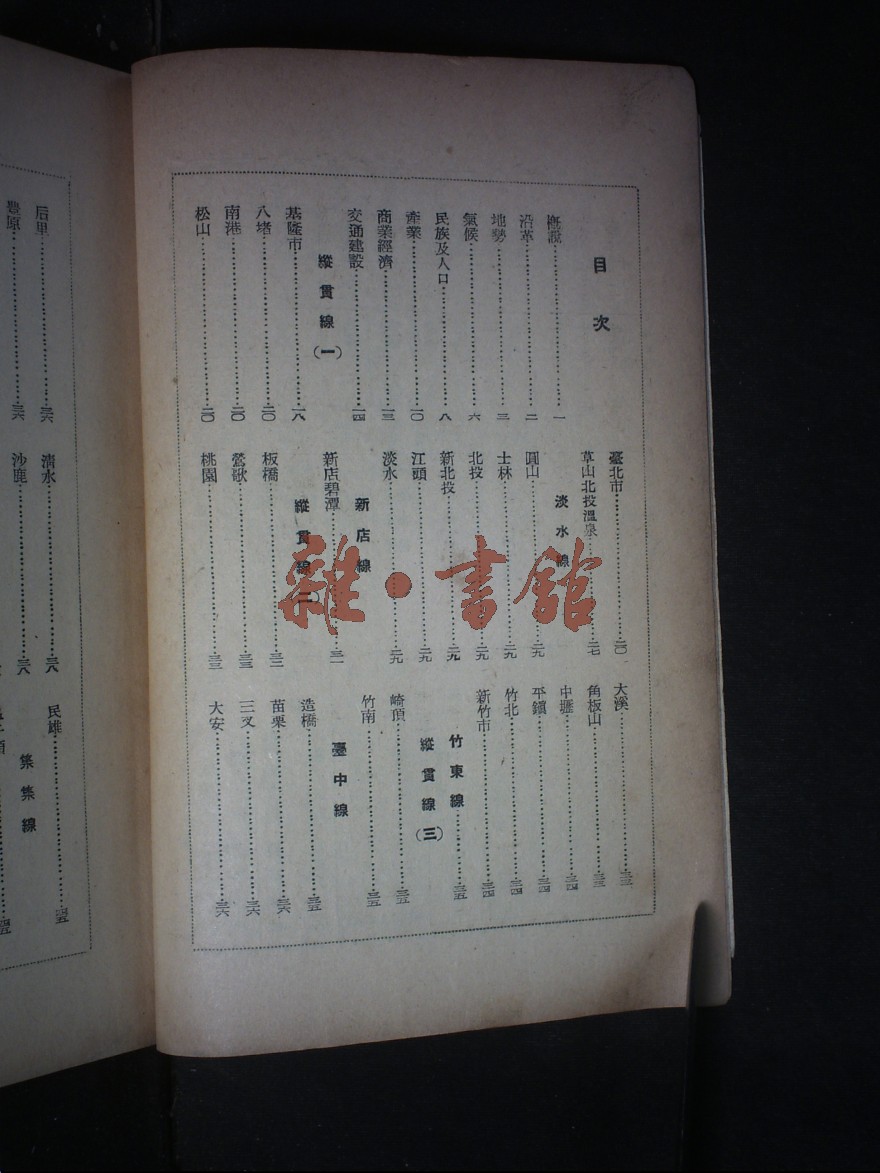 目次
概說⋯⋯一
沿革⋯⋯二
地勢⋯⋯三
氣候⋯⋯六
民族及人口⋯⋯八
產業⋯⋯一〇
商業經濟⋯⋯一三
交通建設⋯⋯一四
縱貫線(一)
基隆市⋯⋯一八
八堵⋯⋯二〇
南港⋯⋯二〇
松山⋯⋯二〇
臺北市⋯⋯二〇
草山北投溫泉⋯⋯二七
淡水線
圓山⋯⋯二九
士林⋯⋯二九
北投⋯⋯二九
新北投⋯⋯二九
江頭⋯⋯二九
淡水⋯⋯二九
新店線
新店碧潭⋯⋯三一
縱貫線(二)
板橋⋯⋯三二
鶯歌⋯⋯三三
桃園⋯⋯三三
大溪⋯⋯三三
角板山⋯⋯三三
中壢⋯⋯三四
平鎮⋯⋯三四
竹北⋯⋯三四
新竹市⋯⋯三四
竹東線⋯⋯三五
縱貫線(三)
崎頂⋯⋯三五
竹南⋯⋯三五
臺中線
造橋⋯⋯三五
苗栗⋯⋯三六
三叉⋯⋯三六
大安⋯⋯三六
后里⋯⋯三六
豐原⋯⋯三六
清水⋯⋯三八
沙鹿⋯⋯三八
民雄⋯⋯四五
集集線
雜·書館